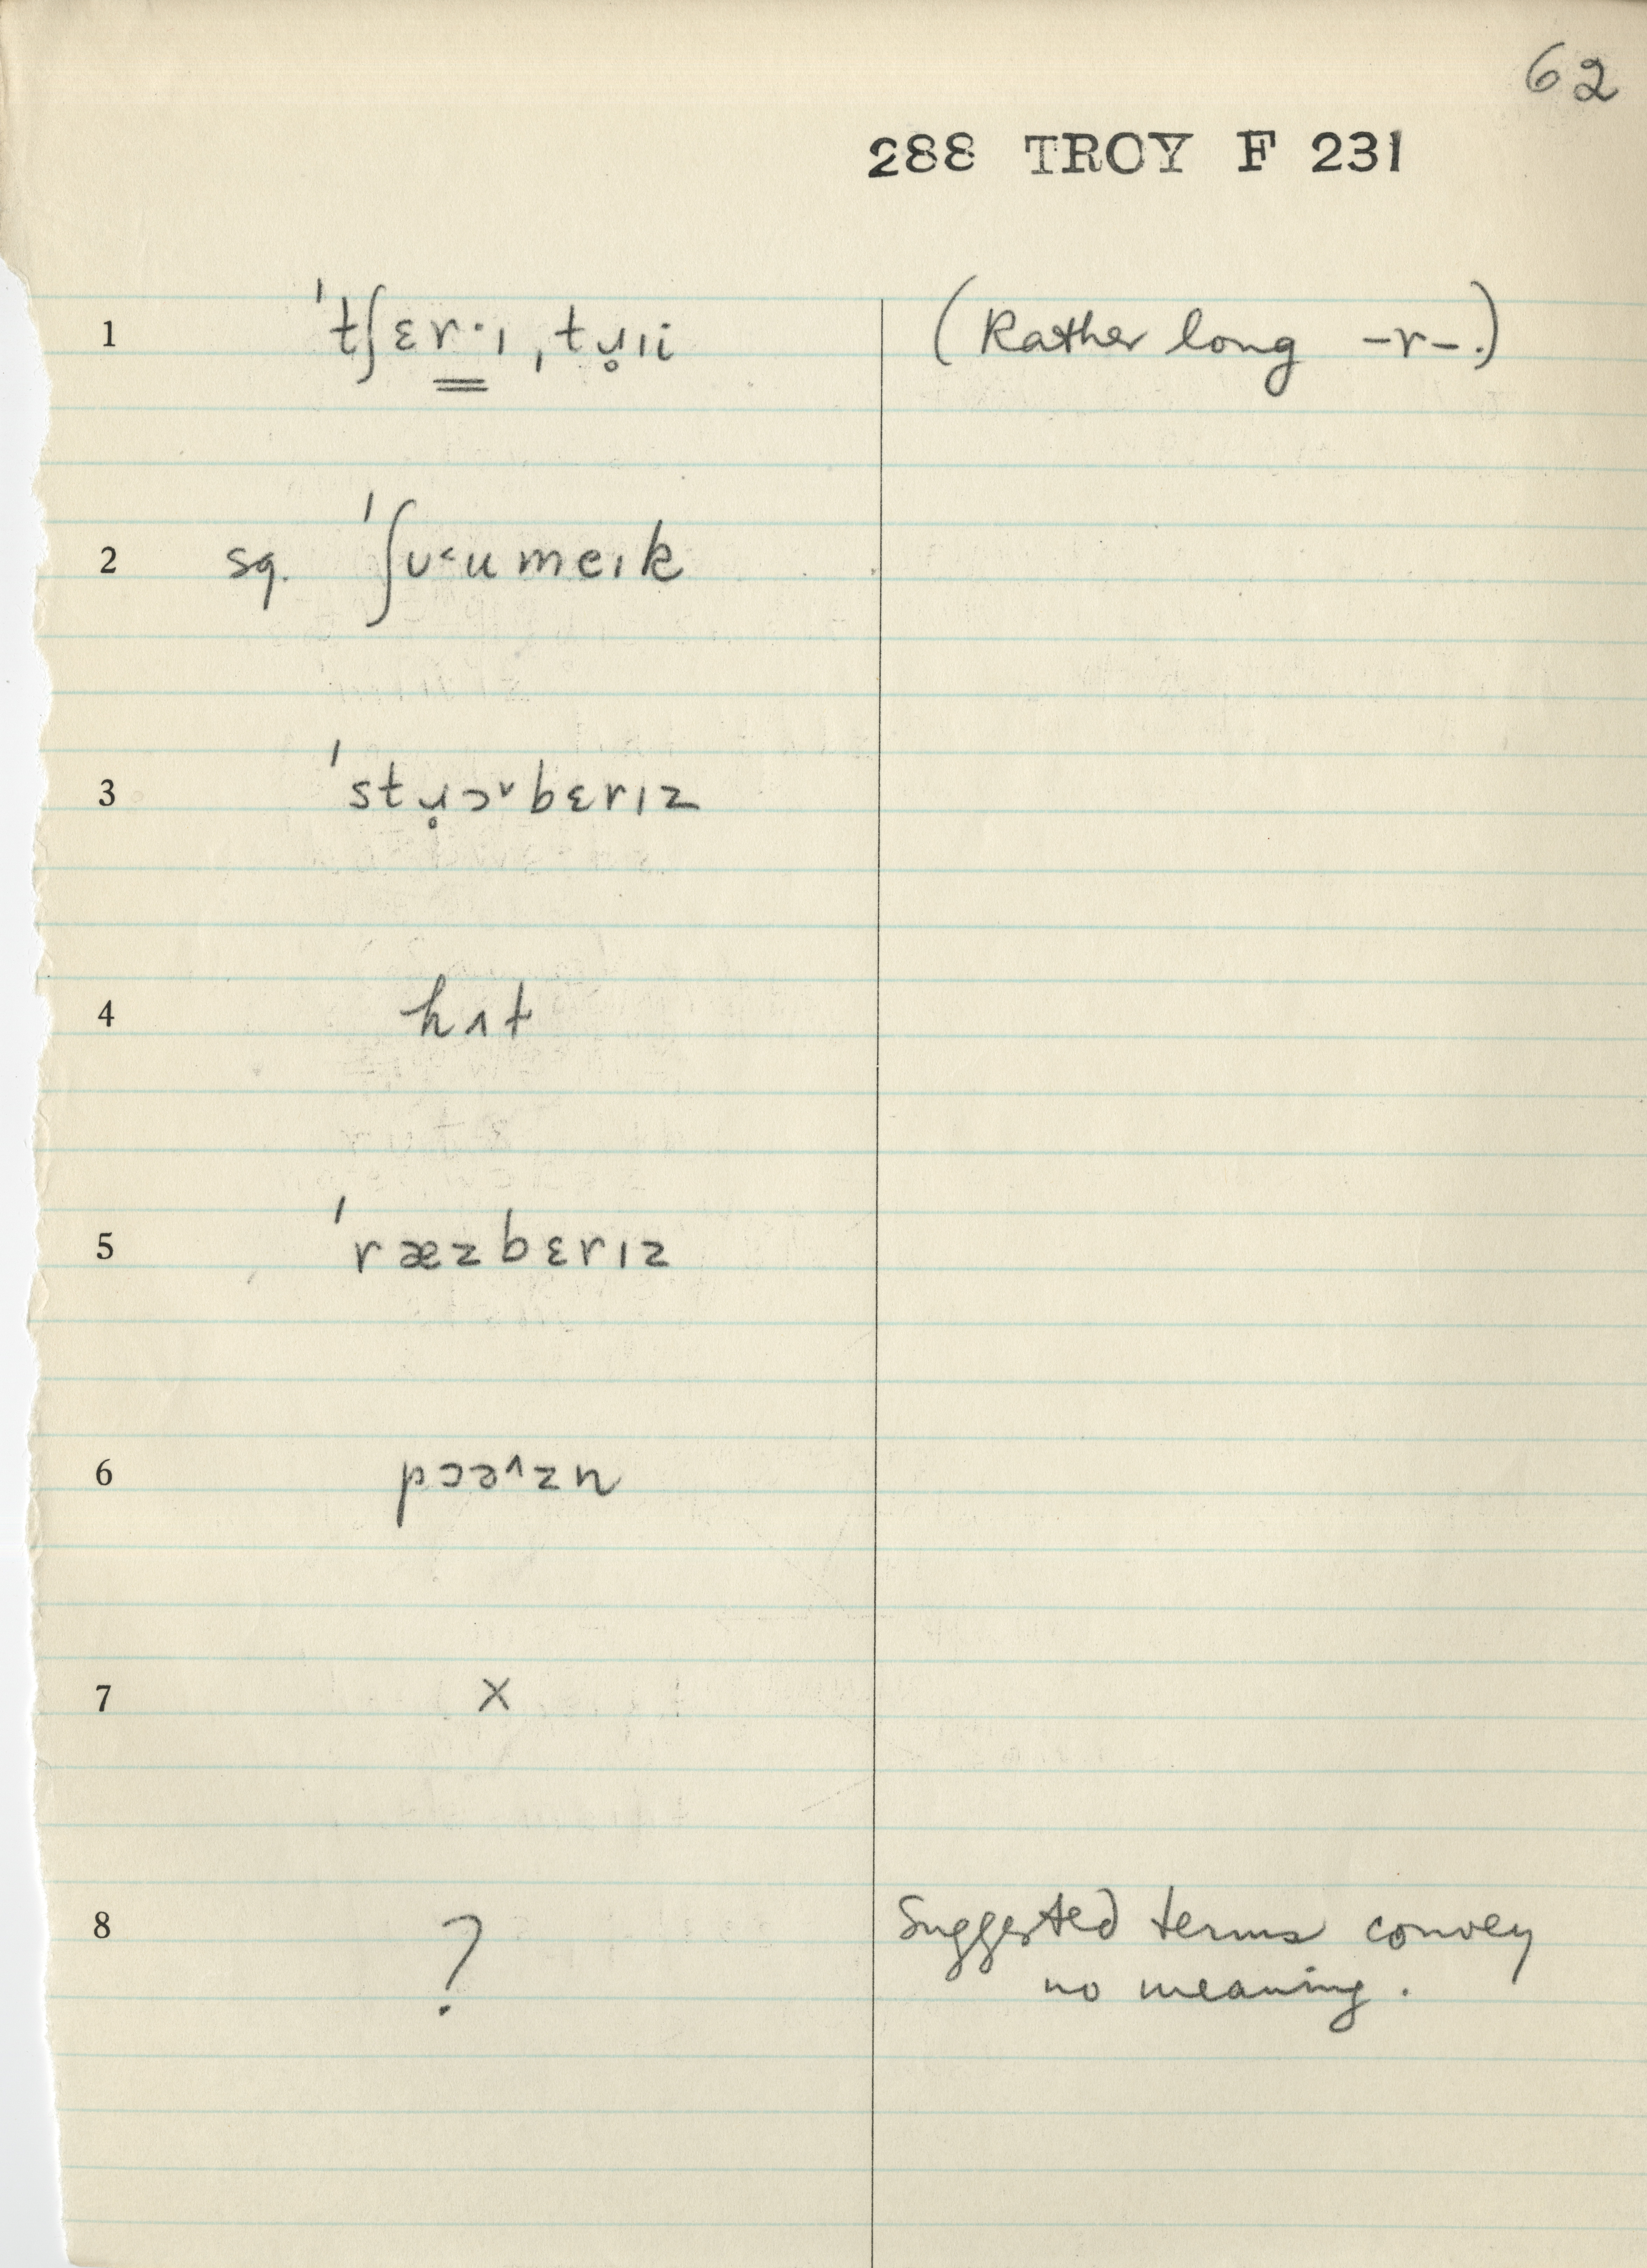 62
288 TROY F 231
1 ˈtʃɛr·ɪ ˌtɹ̥ɪi (Rather long -r-.)
2 sq. ˈʃʊ˂umeɪk
3 ˈstɹ̥ɔ˅bɛrɪz
4 hʌt
5 ˈræzbɛrɪz
6 pɔə^zn
7 x
8 ? Suggested terms convey
no meaning.